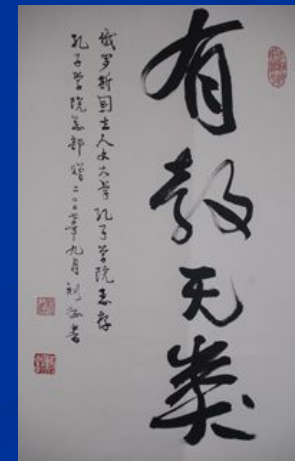 有教无类
俄罗斯国立人文大学孔子学院惠存
孔子学院总部赠二〇〇七年九月